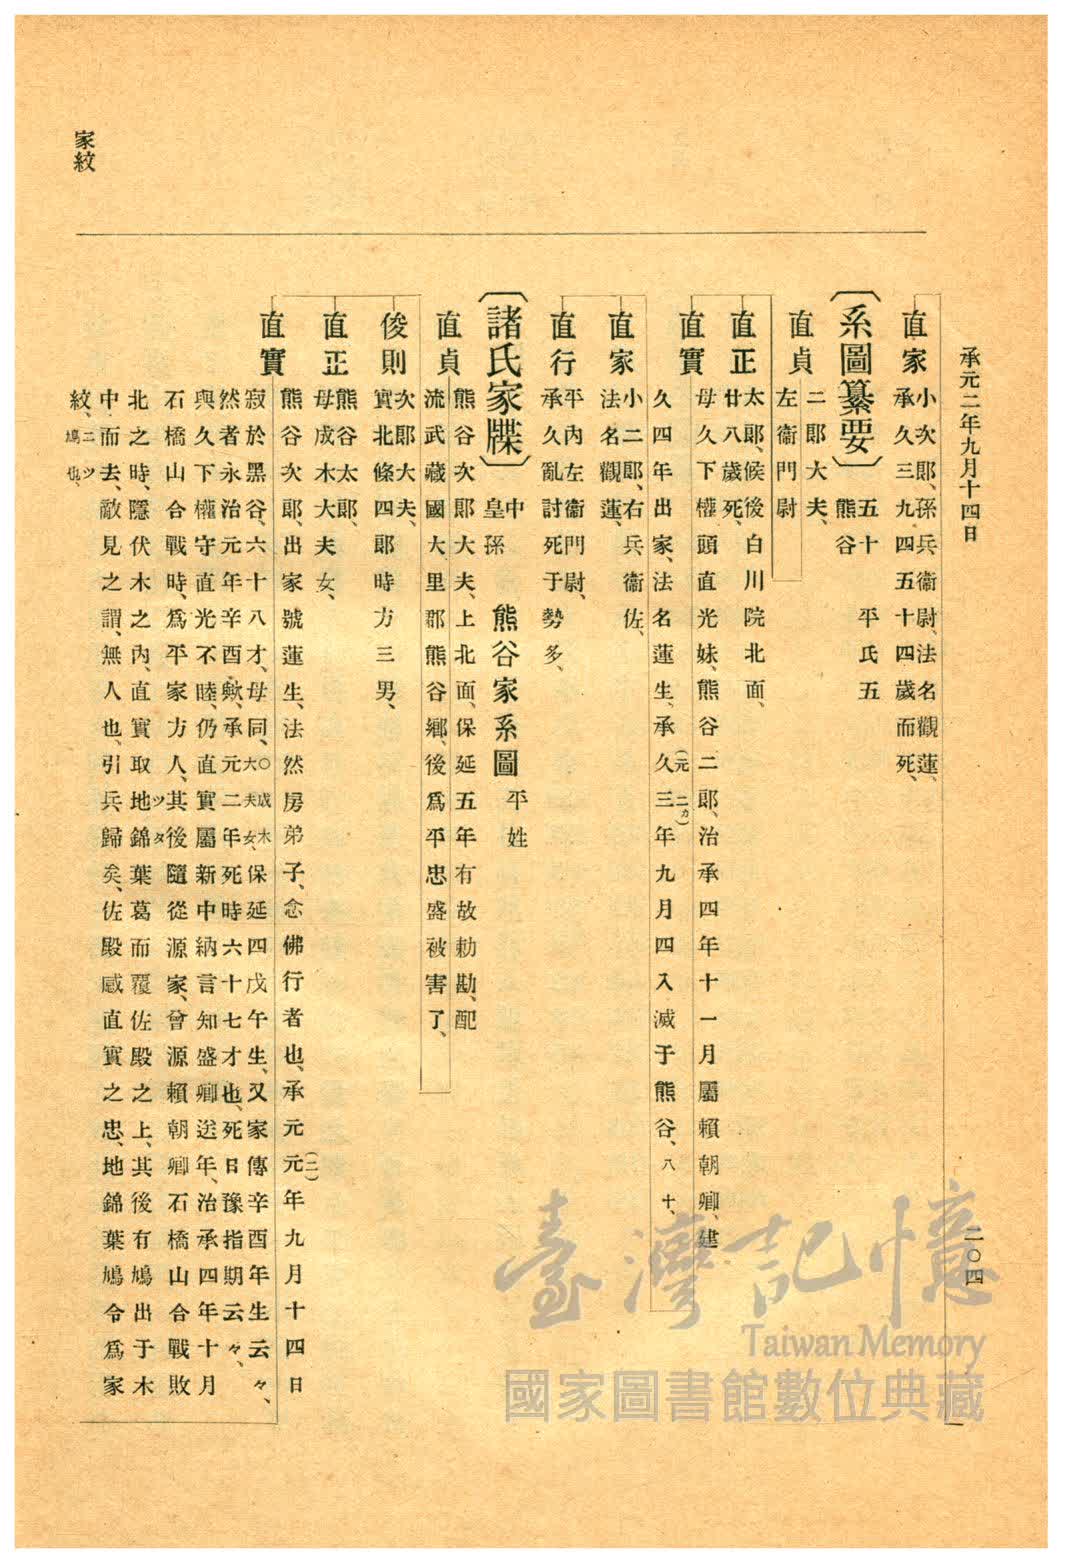 承元二年九月十四日
二〇四
家紋
直家
小次郎、孫兵衞尉、法名觀蓮、
承久三九四五十四歲而死、
〔系圖纂要〕
五十 平氏五
熊谷
直貞
二郎大夫、
左衞門尉
直正
太郎、候後白川院北面、
廿八歲死、
直實
母久下權頭直光妹、熊谷二郎、治承四年十一月屬賴朝卿、建
久四年出家、法名蓮生、承久(元二カ)三年九月四入滅于熊谷、八十、
直家
小二郎、右兵衞佐、
法名觀蓮、
直行
平內左衞門尉、
承久亂討死于勢多、
〔諸氏家牒〕
中
皇孫
熊谷家系圖 平姓
直貞
熊谷次郎大夫、上北面、保延五年有故勅勘、配
流武藏國大里郡熊谷鄉、後爲平忠盛被害了、
俊則
次郎大夫、
實北條四郎時方三男、
直正
熊谷太郎、
母成木大夫女、
直實
熊谷次郎、出家號蓮生、法然房弟子、念佛行者也、承元元(二)年九月十四日
寂於黑谷、六十八才、母同、〇成木大夫女、保延四戊午生、又家傳辛酉年生云々、
然者永治元年辛酉歟、承元二年死時六十七才也、死日豫指期云々、
與久下權守直光不睦、仍直實屬新中納言知盛卿送年、治承四年十月
石橋山合戰時、爲平家方人、其後隨從源家、曾源賴朝卿石橋山合戰敗
北之時、隱伏木之內、直實取地錦(ツタ)葉葛而覆佐殿之上、其後有鳩出于木
中而去、敵見之謂、無人也、引兵歸矣、佐殿感直實之忠、地錦葉鳩令爲家
紋、二ツ鳩也、
臺灣記憶
Taiwan Memory
國家圖書館數位典藏